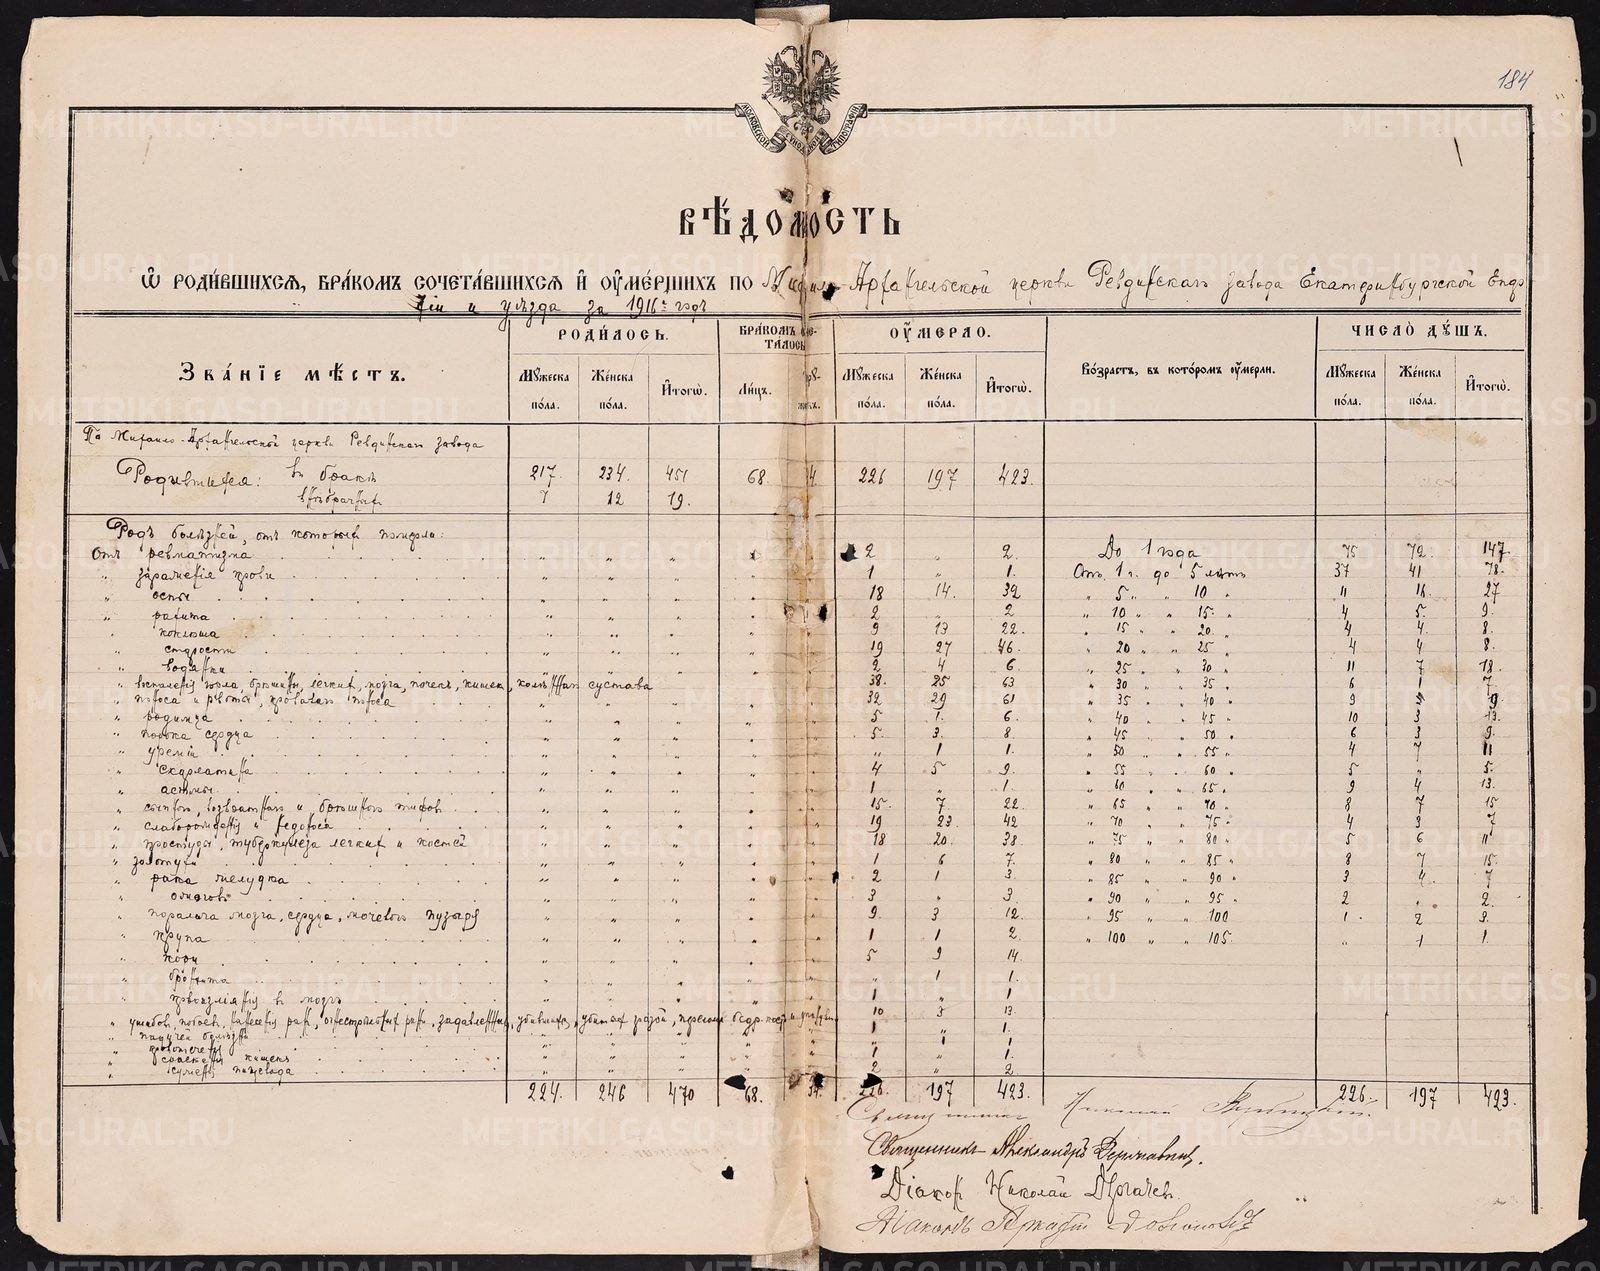 184
МОСКОВСКОЙ СѴНОДАЛЬНОЙ ТИПОГРАФІИ
ВѢ́ДОМОСТЬ
Ѡ РОДИ́ВШИХСЯ, БРА́КОМЪ СОЧЕТА́ВШИХСЯ И҆ ОУ҆МЕ́РШИХЪ ПО Михаило-Архангельской церкви Ревдинскаго завода Екатеринбургской Епар
хіи и уѣзда за 1916 годъ
ЗВА́НІЕ МѢ́СТЪ. РОДИ́ЛОСЬ. БРА́КОМЪ СОЧЕТА́ЛОСЬ ОУ҆́МЕРЛО. Во́зрастъ, въ кото́ромъ оу҆мерли. ЧИСЛО̀ ДУ́ШЪ.
Му́жеска по́ла. Же́нска по́ла. И҆того̀. Ли́цъ. Му́жеска по́ла. Же́нска по́ла. И҆того̀. Му́жеска по́ла. Же́нска по́ла. И҆того̀.
По Михаило-Архангельской церкви Ревдинскаго завода
Родившихся: въ бракѣ 217. 234. 451 68 34. 226 197 423.
внѣбрачныхъ 7 12 19.
Родъ болѣзней, отъ которыхъ померли:
Отъ ревматизма 2 " 2. До 1 года 75 72. 147.
" зараженія крови 1 " 1. Отъ 1 г. до 5 лѣтъ 37 41 78.
" оспы 18 14. 32 " 5 " " 10 " 11 16. 27
" рахита 2 " 2 " 10 " " 15 " 4 5 9.
" коклюша 9 13 22. " 15 " " 20 " 4 4. 8.
" старости 19 27 46. " 20 " " 25 " 4 4 8.
" водянки 2 4 6. " 25 " " 30 " 11 7 18.
" воспаленія горла, брюшины, легкихъ, мозга, почекъ, кишекъ, колѣннаго сустава 38. 25 63 " 30 " " 35 " 6 1 7.
" поноса и рвоты, кроваваго поноса 32 29 61 " 35 " " 40 " 9 " 9.
" родимца 5 1. 6. " 40 " " 45 " 10 3 13.
" порока сердца 5. 3. 8. " 45 " " 50 " 6 3 9.
" уреміи " 1 1. " 50 " " 55 " 4 7 11
" скарлатина 4 5 9. " 55 " " 60 " 5 " 5.
" астмы 1 " 1. " 60 " " 65 " 9 4 13.
" сыпного, возвратнаго и брюшного тифовъ 15. 7 22. " 65 " " 70 " 8 7 15
" слаборожденія и недоноса 19 23. 42 " 70 " " 75 " 4 3 7
" простуды, туберкулеза легкихъ и костей 18 20. 38. " 75 " " 80 " 5 6 11
" золотухи 1 6 7. " 80 " " 85 " 8 7 15.
" рака желудка 2 1 3. " 85 " " 90 " 3 4. 7
" ожоговъ 3 " 3. " 90 " " 95 " 2 " 2.
" паралича мозга, сердца, мочевого пузыря 9. 3 12. " 95 " " 100 1. 2 3.
" крупа 1 1 2. " 100 " " 105. " 1 1.
" кори 5 9 14.
" бронхита " 1 1.
" кровоизліянія въ мозгъ 1 " 1
10 3 13.
" падучей болѣзни 1 " 1.
" 1 1.
кишекъ 1 " 1.
пищевода 2 " 2
224. 246 470 68. 34. 226. 197 423. 226. 197 423.
Священникъ Николай
Священникъ Александръ Державинъ.
Діаконъ Николай Дягилевъ.
Діаконъ